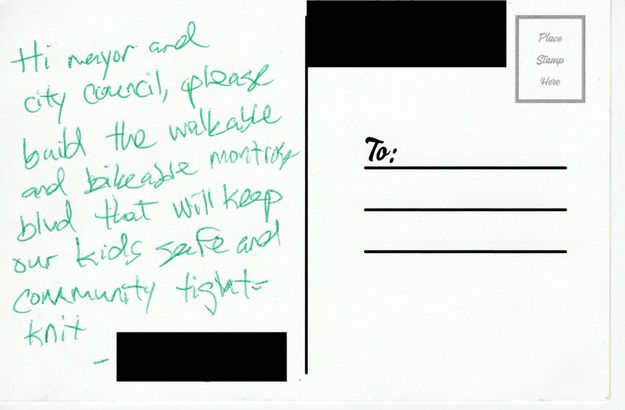 Hi mayor and
city council, please
build the walkable
and bikeable montrose
blvd that will keep
our kids safe and
community tight-
knit
-
Place
Stamp
Here
To: